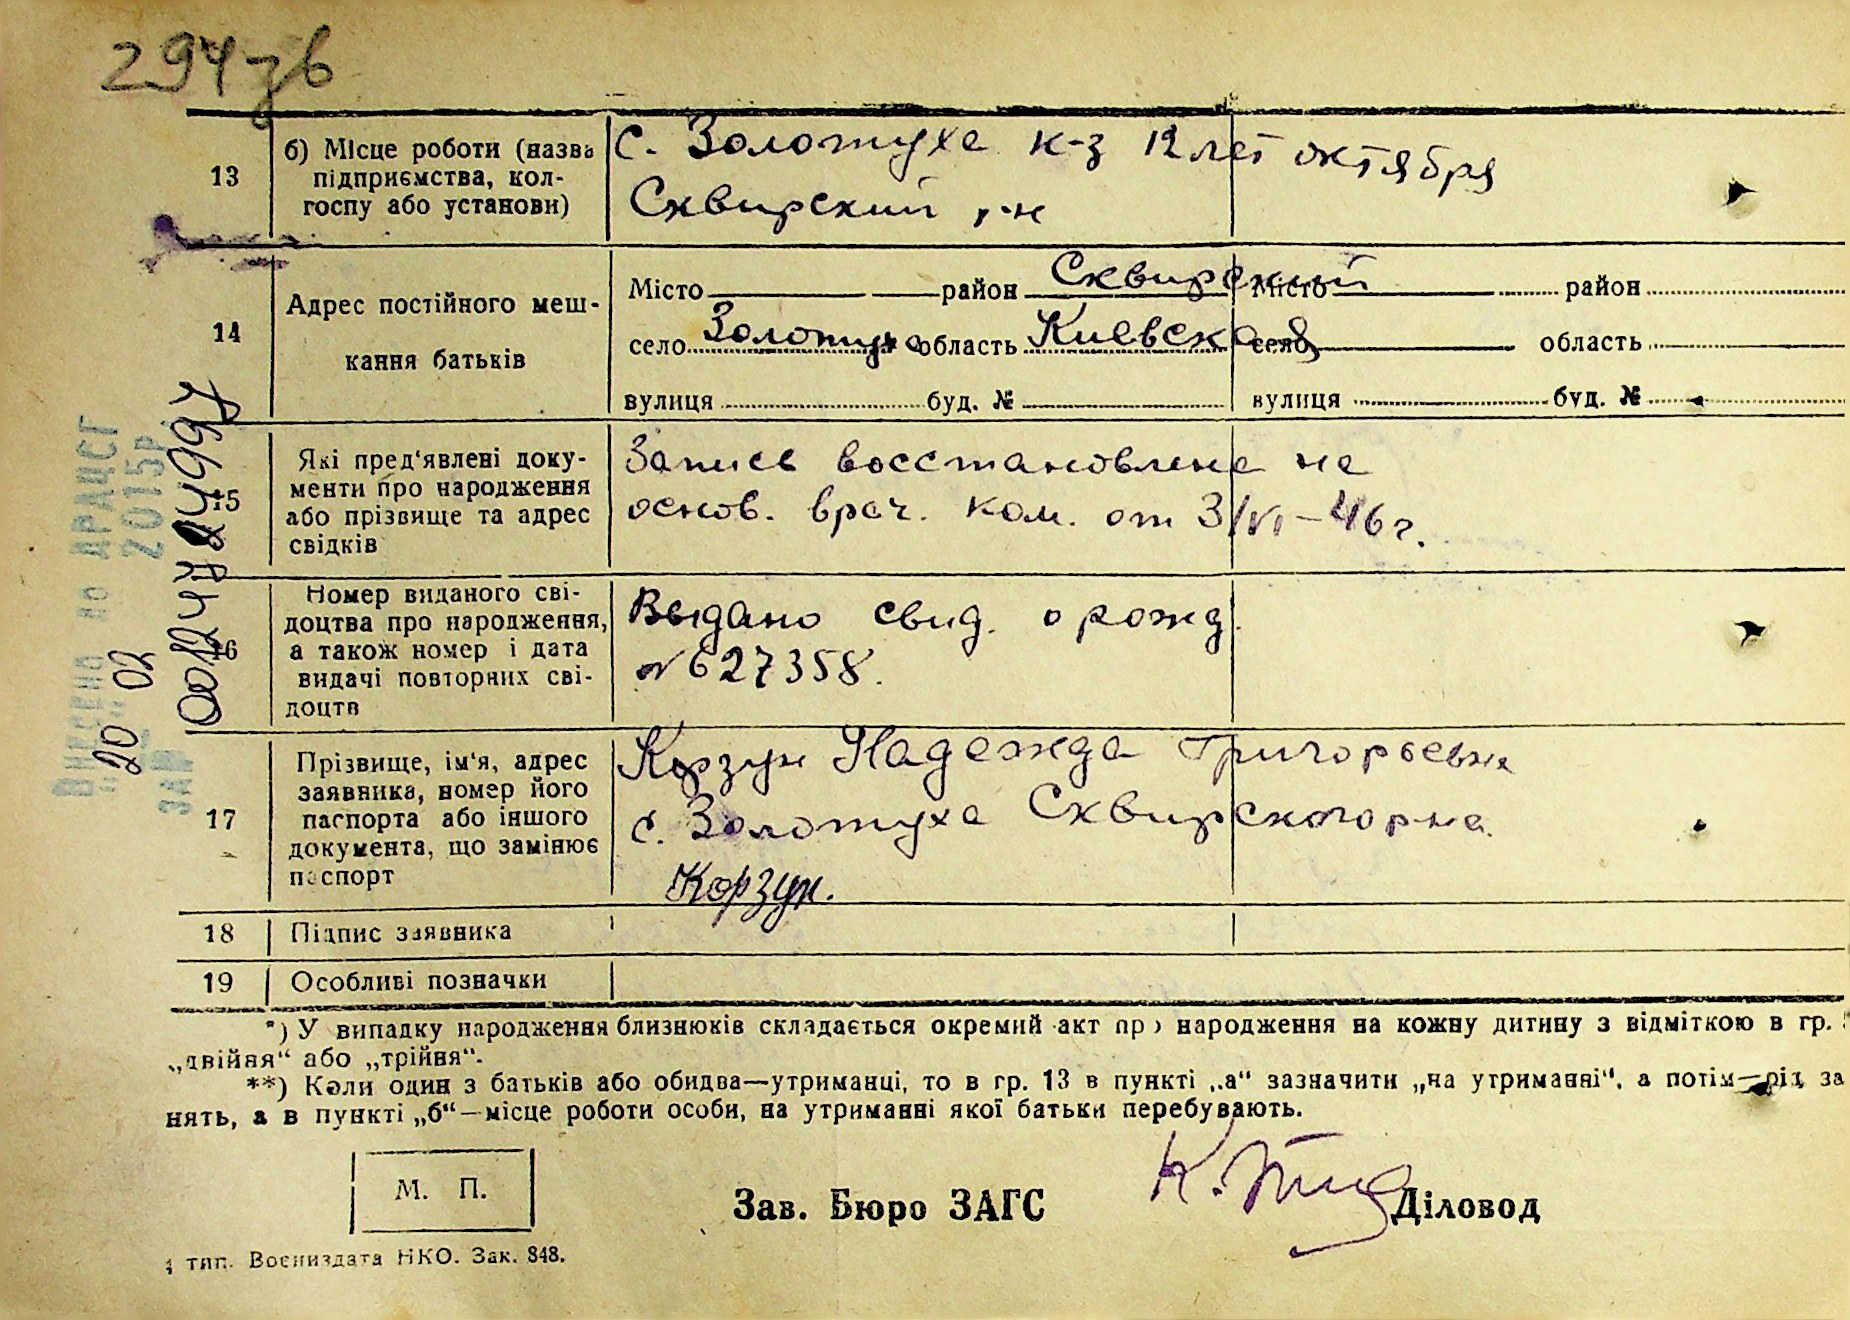 294 зв
13
б) Місце роботи (назва
підприємства, кол-
госпу або установи)
с. Золотуха к-з 12 лет октября
Сквирский р-н
14
Адрес постійного меш-
кання батьків
Місто район Сквирский Місто район
село Золотуха область Киевская село область
вулиця буд. № вулиця буд. №
15
Які пред'явлені доку-
менти про народження
або прізвище та адрес
свідків
Запись восстановлена на
основ. врач. ком. от 3/VI-46 г.
16
Номер виданого сві-
доцтва про народження,
а також номер і дата
видачі повторних сві-
доцтв
Выдано свид. о рожд.
№ 627358.
17
Прізвище, ім'я, адрес
заявника, номер його
паспорта або іншого
документа, що замінює
паспорт
Корзун Надежда Григорьевна
с. Золотуха Сквирского р-на.
Корзун.
18
Підпис заявника
19
Особливі позначки
*) У випадку народження близнюків складається окремий акт про народження на кожну дитину з відміткою в гр.
„двійня“ або „трійня“.
**) Коли один з батьків або обидва—утриманці, то в гр. 13 в пункті „а“ зазначити „на утриманні“, а потім—рід за
нять, а в пункті „б“—місце роботи особи, на утриманні якої батьки перебувають.
М. П.
Зав. Бюро ЗАГС
Діловод
тип. Воениздата НКО. Зак. 848.
Внесено до ДРАЦСГ
20 02 2015р